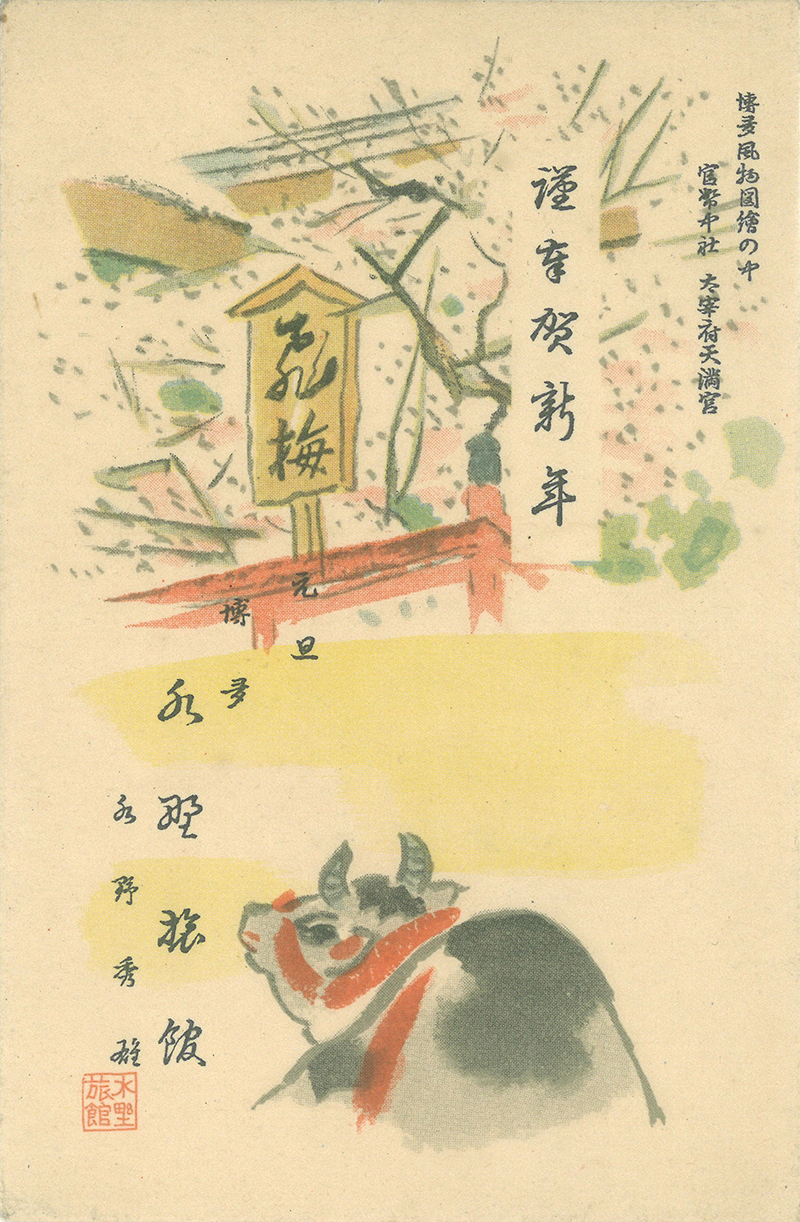 博多風物図繪の中
官幣中社 太宰府天満宮
謹奉賀新年
飛梅
元旦
博多
水野旅館
水野秀雄
水野
旅館